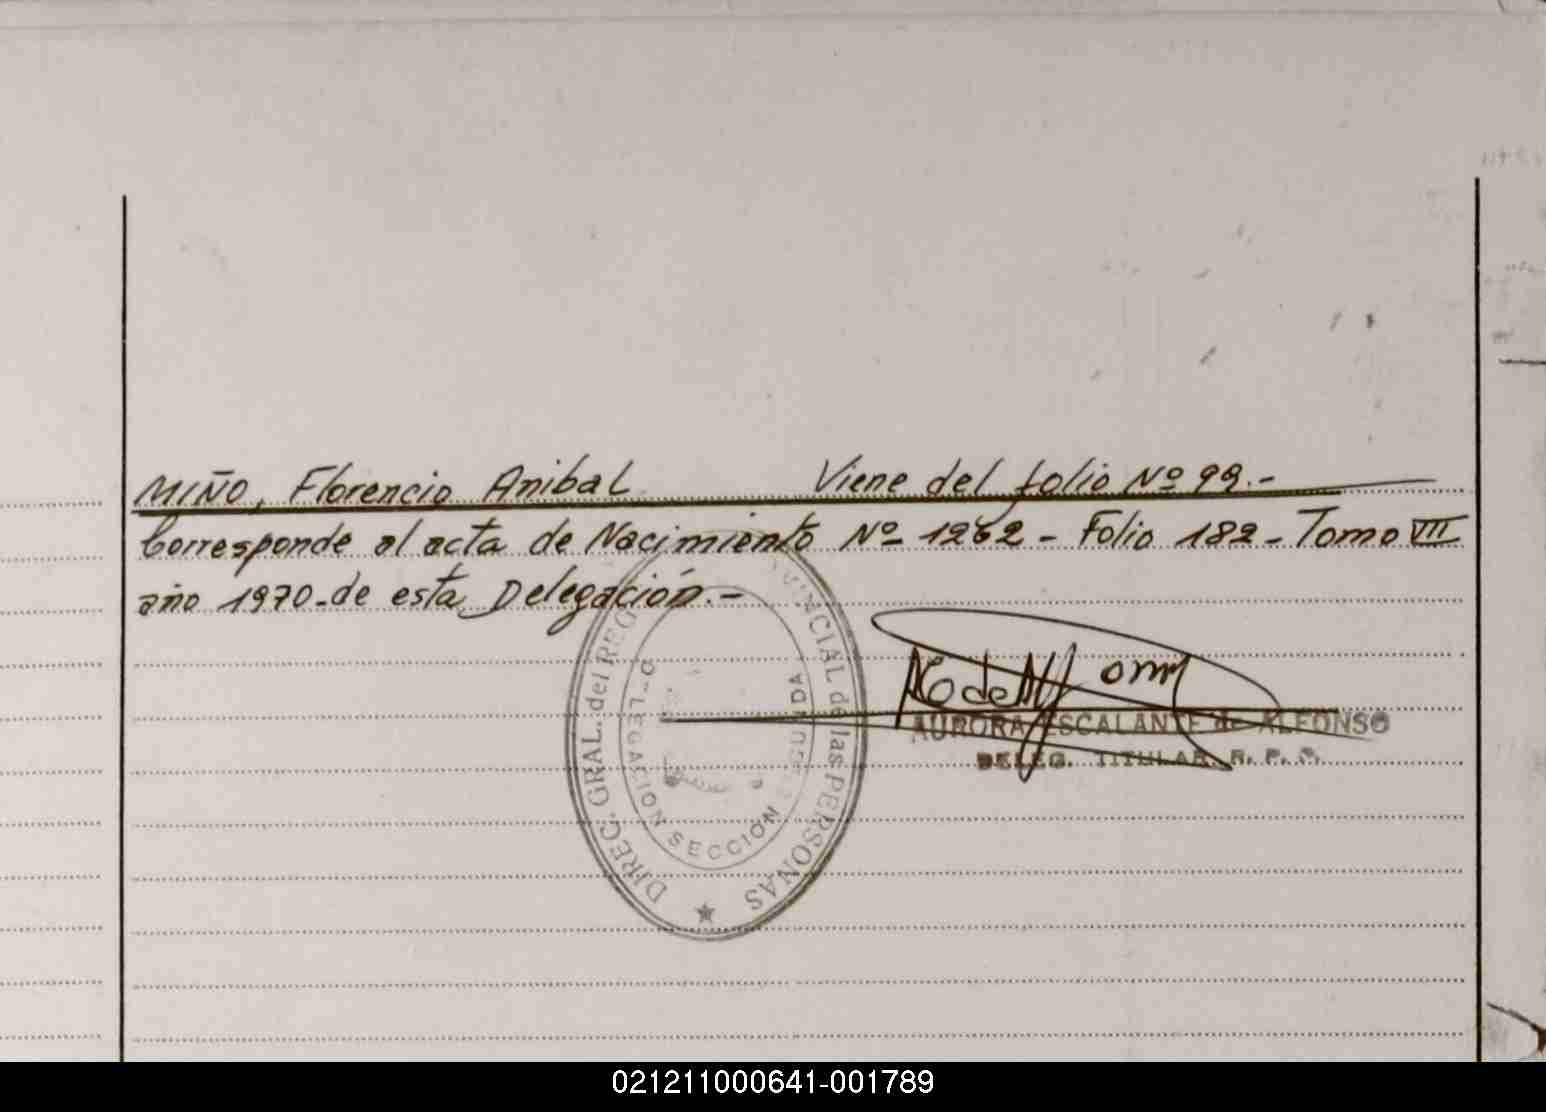 MIÑO, Florencio Anibal Viene del folio Nº 99.-
Corresponde al acta de Nacimiento Nº 1262 - Folio 182 - Tomo VII
año 1970 - de esta Delegación.-
DIREC. GRAL. del REG. PROVINCIAL de las PERSONAS
DELEGACION SECCION SEGUNDA
AURORA ESCALANTE de ALFONSO
DELEG. TITULAR R. P. P.
021211000641-001789